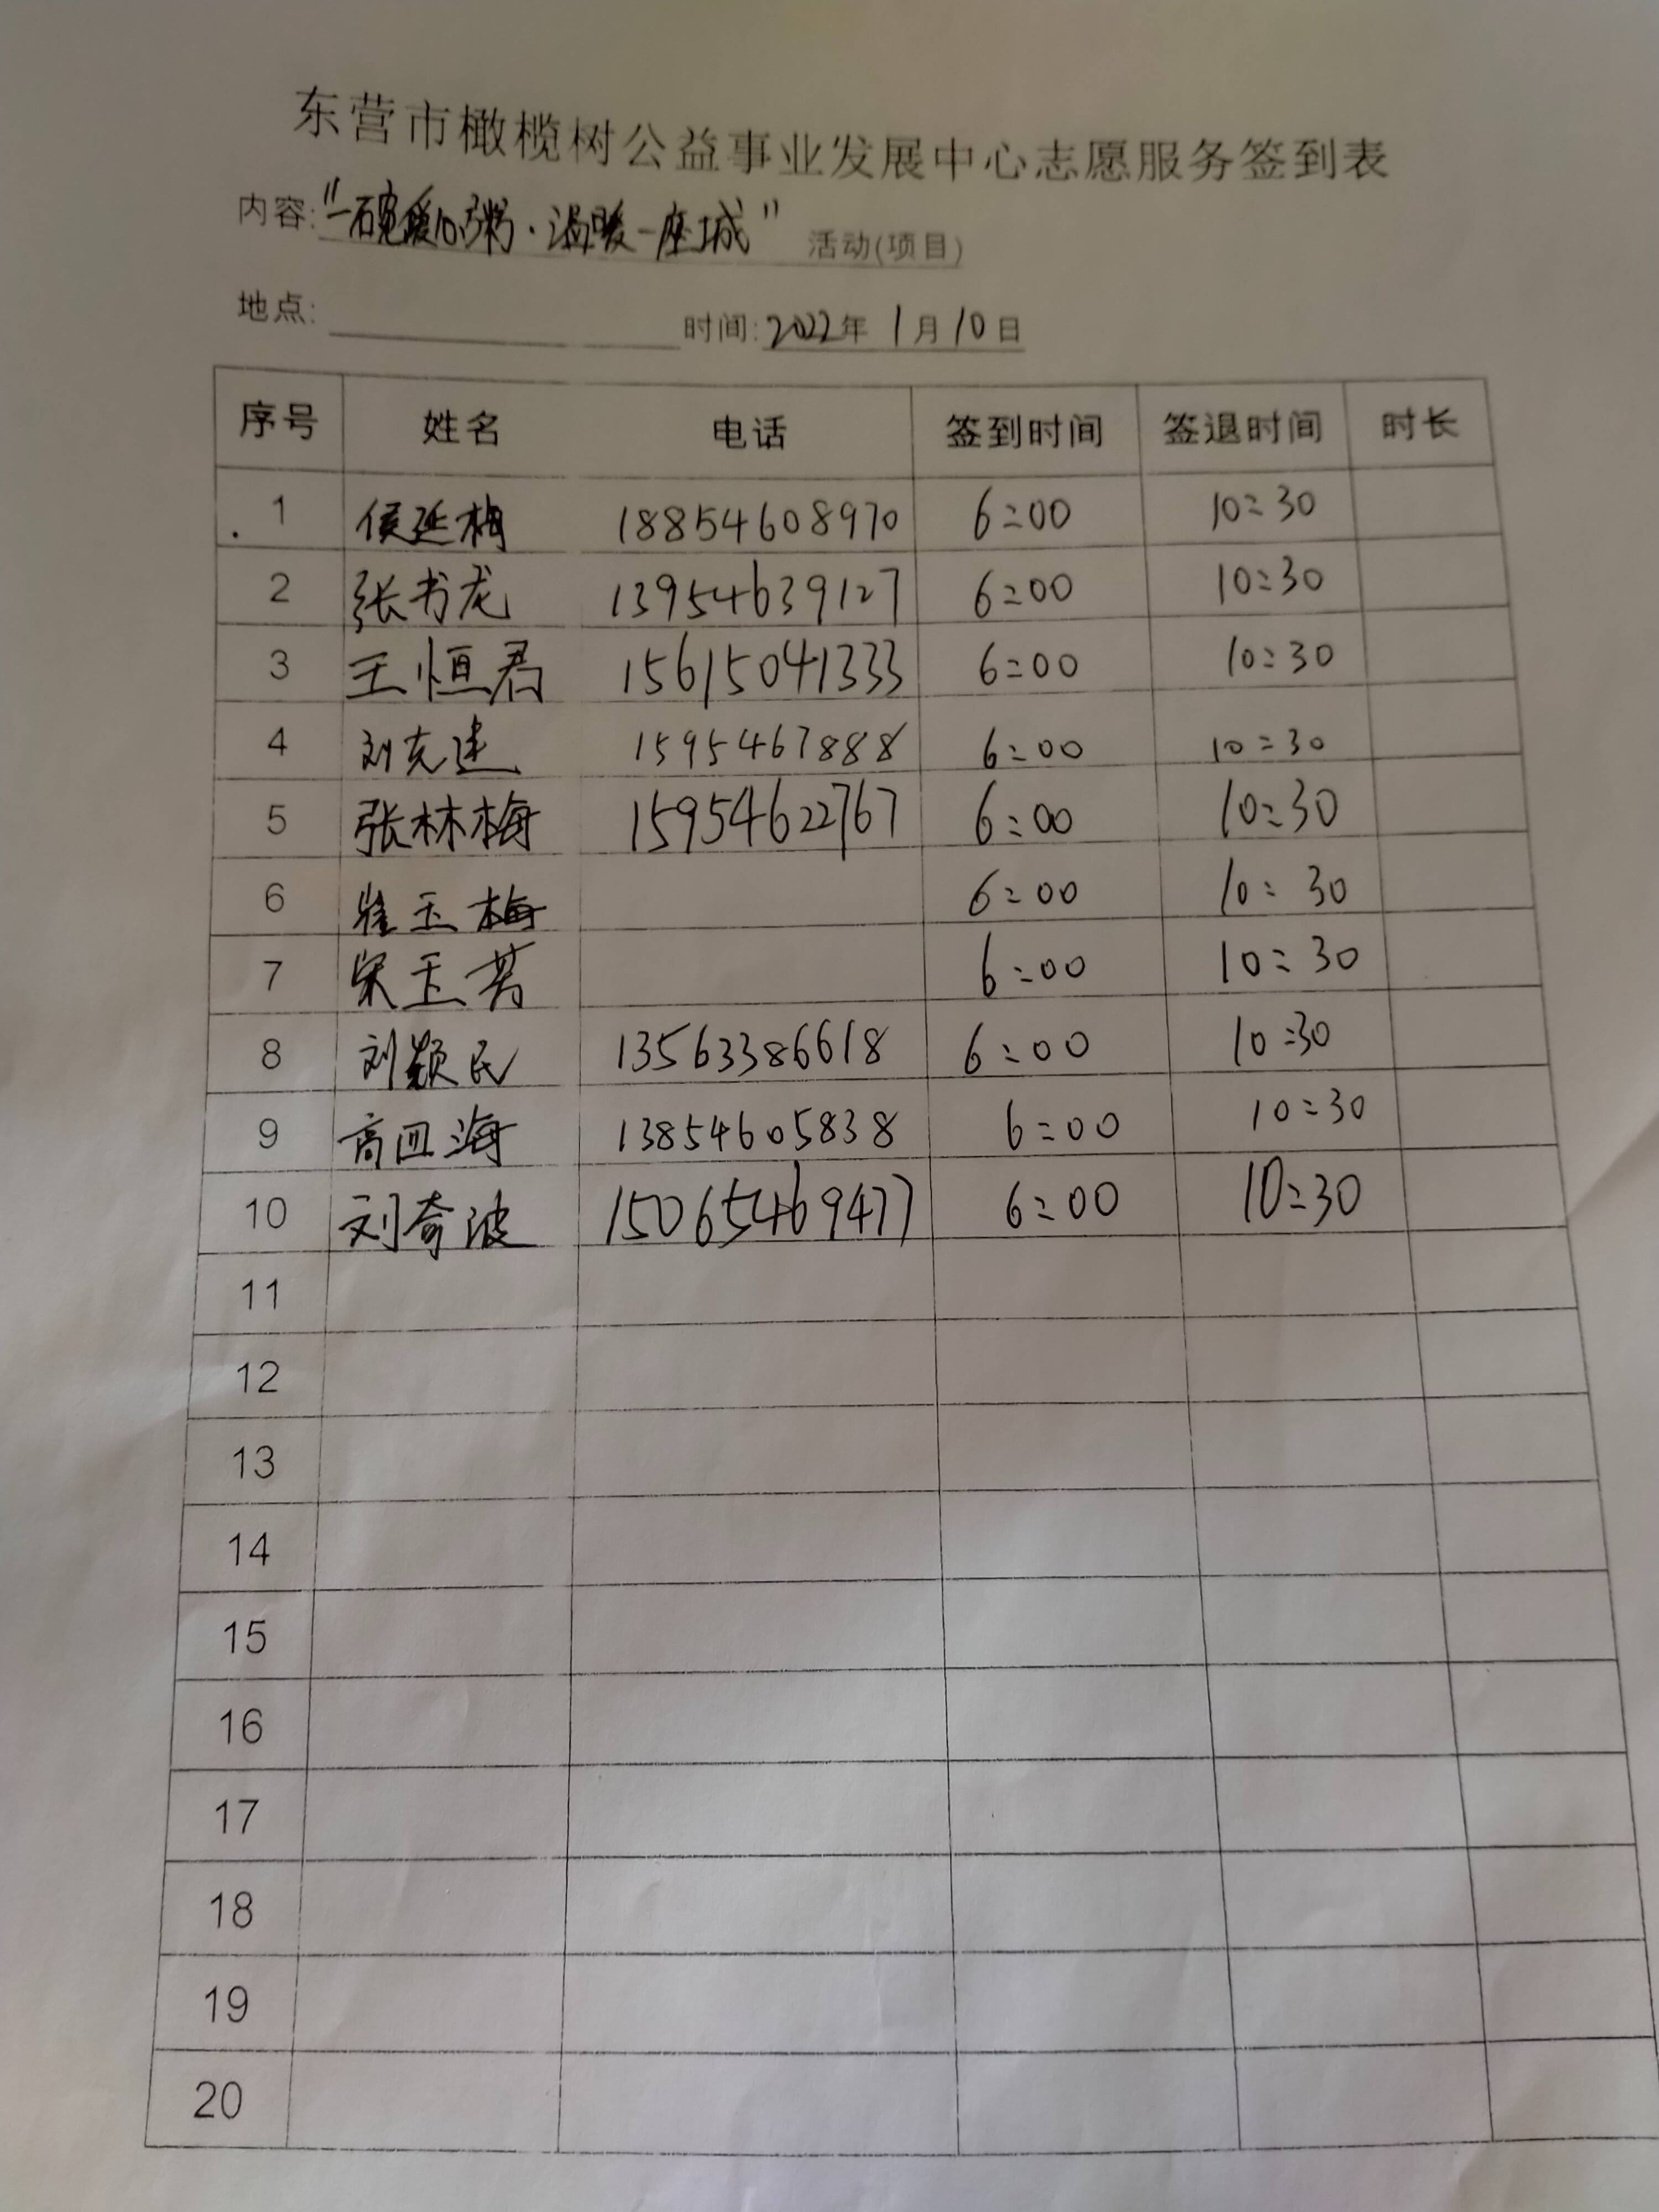 东营市橄榄树公益事业发展中心志愿服务签到表
内容:"一碗暖心粥·温暖一座城" 活动(项目)
地点: 时间:2022年 1月10日
序号 姓名 电话 签到时间 签退时间 时长
1 侯延梅 18854608970 6:00 10:30
2 张书龙 13954639127 6:00 10:30
3 王恒君 15615041333 6:00 10:30
4 刘克建 1595467888 6:00 10:30
5 张林梅 15954622767 6:00 10:30
6 崔玉梅 6:00 10:30
7 宋玉芳 6:00 10:30
8 刘颖民 13563386618 6:00 10:30
9 高四海 13854605838 6:00 10:30
10 刘奇波 15065469477 6:00 10:30
11
12
13
14
15
16
17
18
19
20